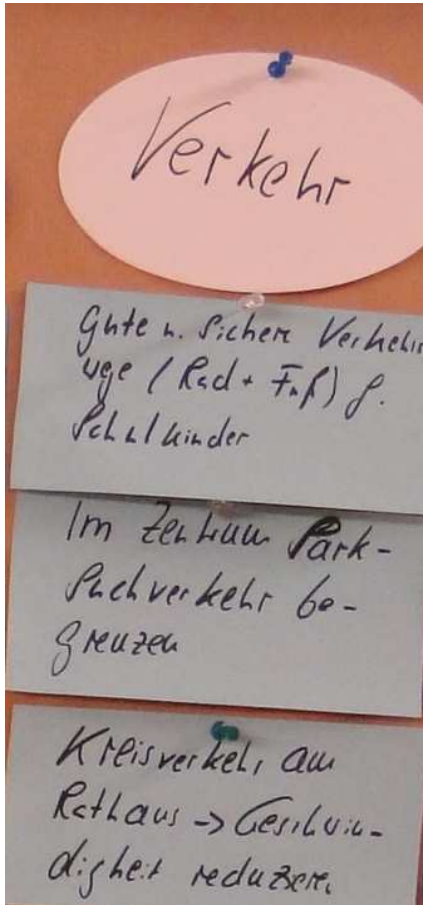 Verkehr
Gute u. sichere Verkehrs
wege (Rad + Fuß) f.
Schulkinder
Im Zentrum Park-
suchverkehr be-
grenzen
Kreisverkehr am
Rathaus -> Geschwin-
digkeit reduzieren